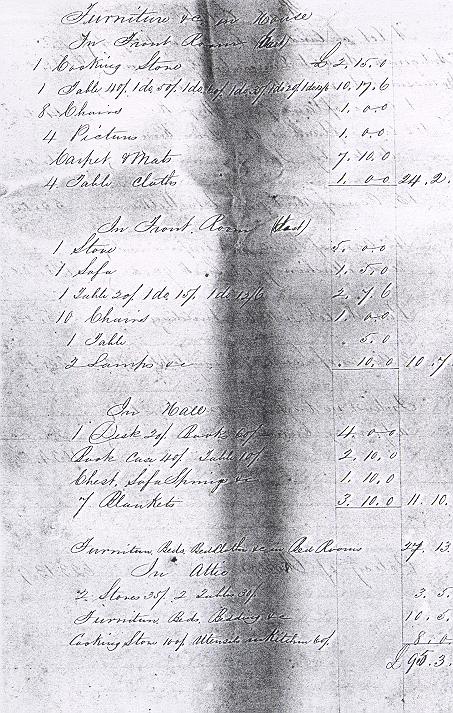 Furniture &c in House
In Front Room (East)
1 Cooking Stove £ 2. 15. 0
1 Table 40/ 1 do 50/ 10. 17. 6
8 Chairs 1. 0. 0
4 Pictures 1. 0. 0
Carpet & Mats 7. 10. 0
4 Table Cloths 1. 0. 0 24. 2.
In Front Room
1 Stove 5. 0. 0
1 Sofa 1. 5. 0
1 Table 20/ 1 do 15/ 1 do 12/6 2. 7. 6
10 Chairs 1. 0. 0
1 Table . 5. 0
2 Lamps &c . 10. 0 10. 7.
In Hall
1 Desk 20/ Books 60/ 4. 0. 0
Book Case 40/ Table 10/ 2. 10. 0
Chest, Sofa Springs &c 1. 10. 0
7 Blankets 3. 10. 0 11. 10.
Furniture, Beds, Bedclothes &c in Bed Rooms 27. 13.
In Attic
2 Stoves 35/ 2 Tables 30/ 3. 5.
Furniture, Beds, Bedding &c 10. 5.
Cooking Stove 100/ Utensils in Kitchen 60/ 8. 0
£ 95. 3.